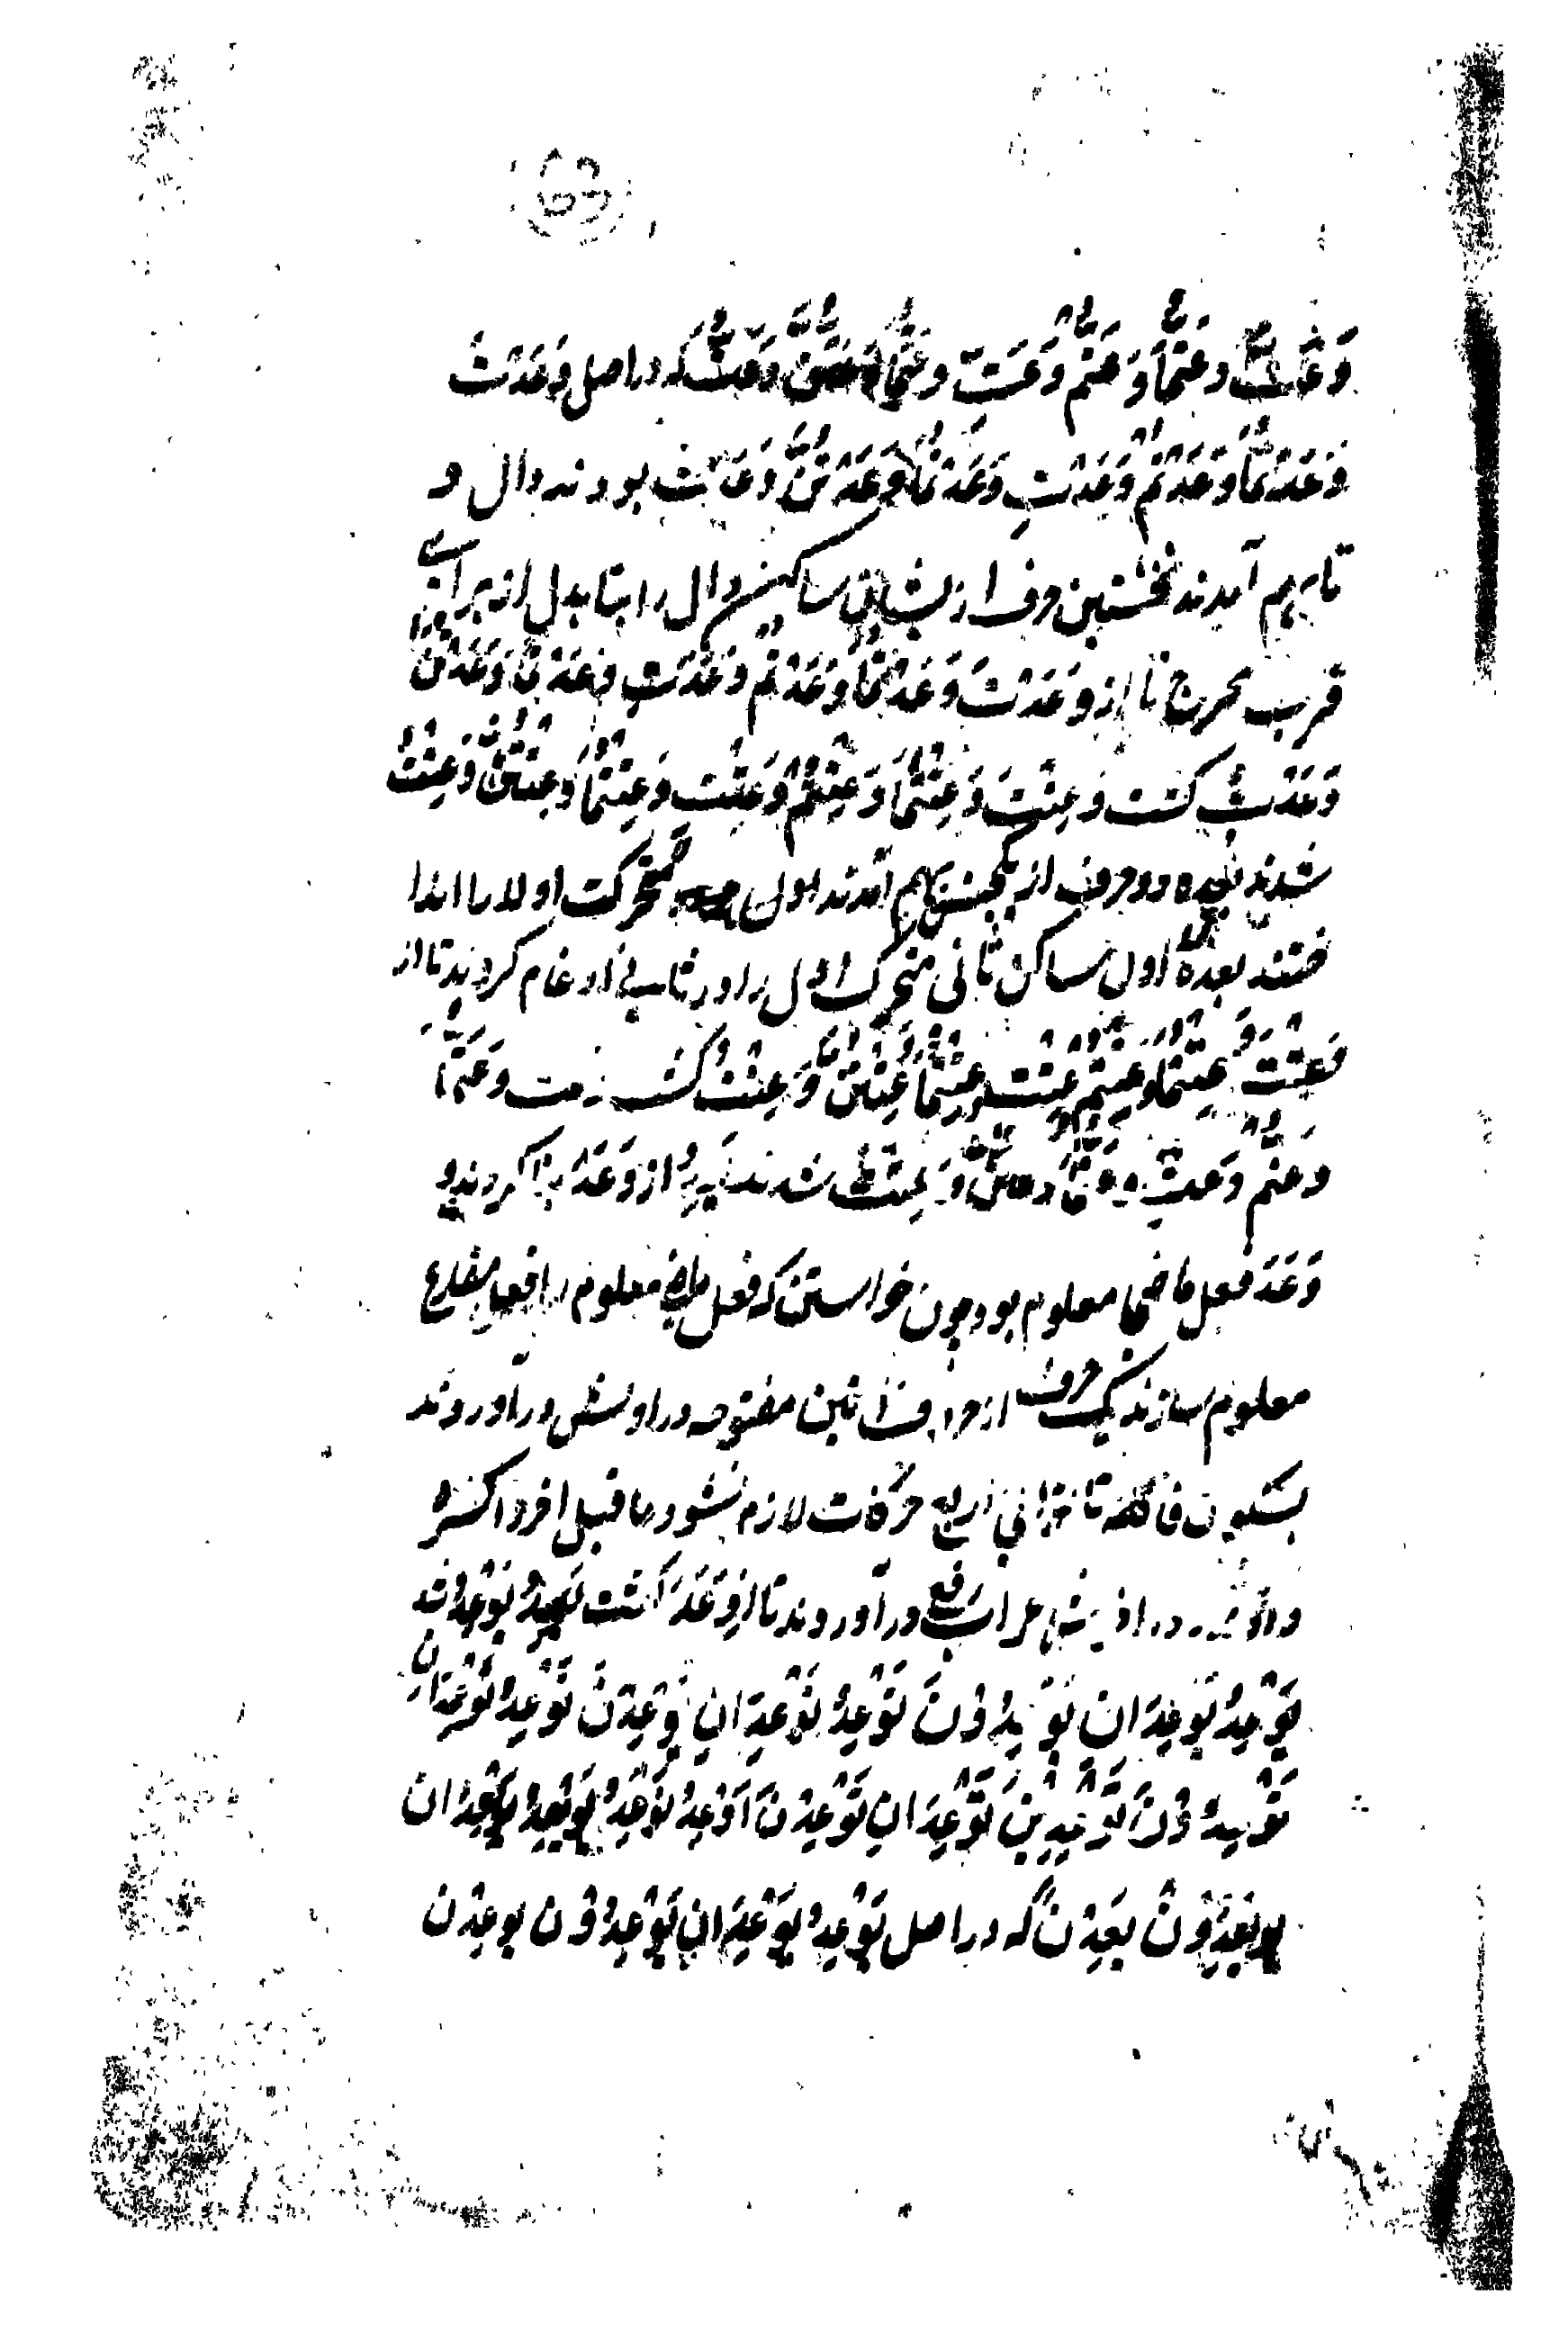 63
وَعَتَّ وعَتُّمَا وَعَتُّمْ وَعَتِّ وعَتُّمَا وَعَتُّنَّ وَعَتُّ که دراصل وَعَدْتَ
وَعَدْتُمَا وَعَدْتُمْ وَعَدْتِ وَعَدْتُمَا وَعَدْتُنَّ وَعَدْتُ بودند دال و
تا بهم آمدند نخستین حرف از یشان ساکن دال را بتا بدل از برای
قرب مخرج تا از وَعَدْتَ وَعَدْتُمَا وَعَدْتُمْ وَعَدْتِ وَعَدْتُمَا وَعَدْتُنَّ
وَعَدْتُ گشت وَعِتْتَ وَعِتْتُمَا وَعِتْتُمْ وَعِتْتِ وَعِتْتُمَا وَعِتْتُنَّ وَعِتْتُ
شدند بعده دوحرف از یکجنس بهم آمدند اول متحرکت اولا را اندا
ختند بعده اول ساکن ثانی متحرک اول را در ثانی ادغام کردند تا از
وَعِتْتَ وَعِتْتُمَا وَعِتْتُمْ وَعِتْتِ وَعِتْتُمَا وَعِتْتُنَّ وَعِتْتُ گشت وَعَتُّمَا
وعَتُّمْ وَعَتِّ شدند از وَعَدَ بنا کردند و
وَعَدَ فعل ماضی معلوم بود چون خواستن که فعل ماضی معلوم را فعل مضارع
معلوم سازند یک حرف از حروف اتین مفتوحه در اولش در آوردند
بسکون فا کلمه تا توالی اربع حرکات لازم نشود ما قبل اخر را کسره
دادند در اخرش اعراب رفع در آوردند تا از وَعَدَ گشت
یَوْعِدُ یَوْعِدَانِ یَوْعِدُوْنَ تَوْعِدُ تَوْعِدَانِ یَوْعِدْنَ تَوْعِدُ تَوْعِدَانِ
تَوْعِدُوْنَ تَوْعِدِیْنَ تَوْعِدَانِ تَوْعِدْنَ اَوْعِدُ نَوْعِدُ یَعِدُ یَعِدَانِ
یَعِدُوْنَ یَعِدْنَ که دراصل یَوْعِدُ یَوْعِدَانِ یَوْعِدُوْنَ یوعِدْنَ